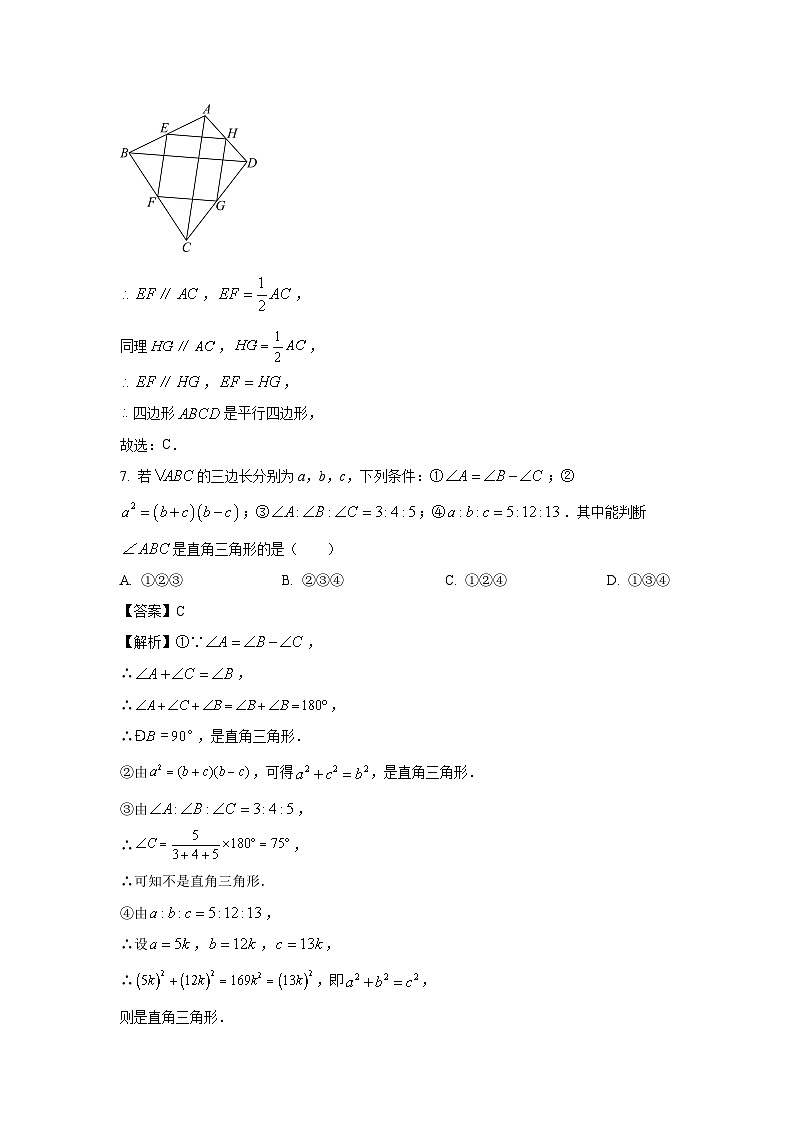 A
E
H
B
D
F
G
C
∴ EF∥AC，EF=1/2AC，
同理HG∥AC，HG=1/2AC，
∴ EF∥HG，EF=HG，
∴四边形ABCD是平行四边形，
故选：C．
7. 若VABC的三边长分别为a，b，c，下列条件：①∠A=∠B−∠C；②
a²=(b+c)(b−c)；③∠A:∠B:∠C=3:4:5；④a:b:c=5:12:13．其中能判断
∠ABC是直角三角形的是（　　）
A. ①②③　B. ②③④　C. ①②④　D. ①③④
【答案】C
【解析】①∵∠A=∠B−∠C，
∴∠A+∠C=∠B，
∴∠A+∠C+∠B=∠B+∠B=180°，
∴ÐB=90°，是直角三角形．
②由a²=(b+c)(b−c)，可得a²+c²=b²，是直角三角形．
③由∠A:∠B:∠C=3:4:5，
∴∠C=5/(3+4+5)×180°=75°，
∴可知不是直角三角形．
④由a:b:c=5:12:13，
∴设a=5k，b=12k，c=13k，
∴(5k)²+(12k)²=169k²=(13k)²，即a²+b²=c²，
则是直角三角形．